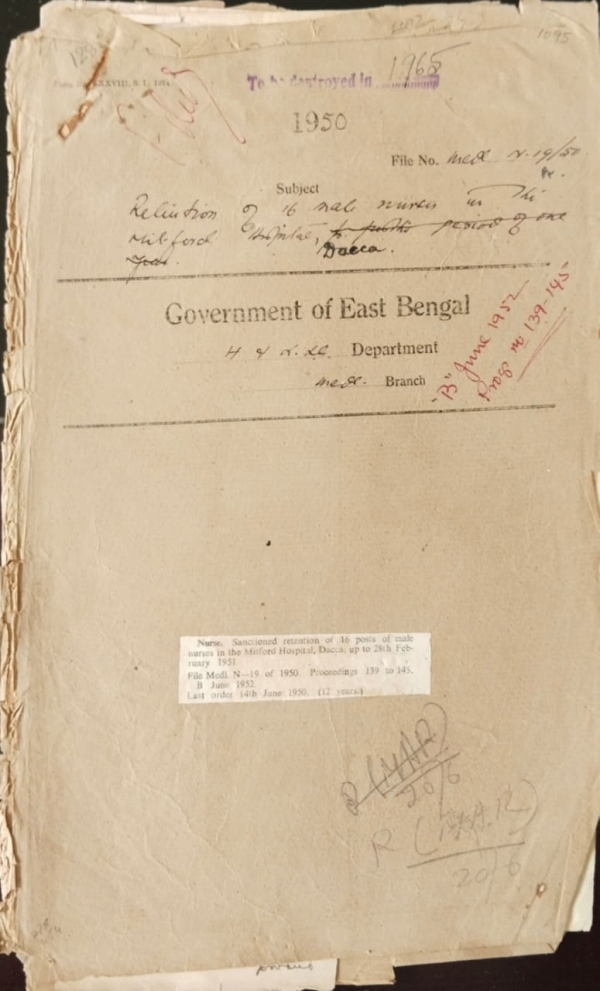 1095
To be destroyed in 1965
1950
File No. Medl N-19/50
Subject
Retention of 16 male nurses in the
Mitford Hospital, period of one
Dacca.
Government of East Bengal
H & L.S.G. Department
Medl. Branch
"B" June 1952
Progs no 139-145
Nurse. Sanctioned retention of 16 posts of male
nurses in the Mitford Hospital, Dacca, up to 28th Feb-
ruary 1951.
File Medl. N—19 of 1950. Proceedings 139 to 145,
B June 1952.
Last order 14th June 1950. (12 years)
20/6
R
20/6